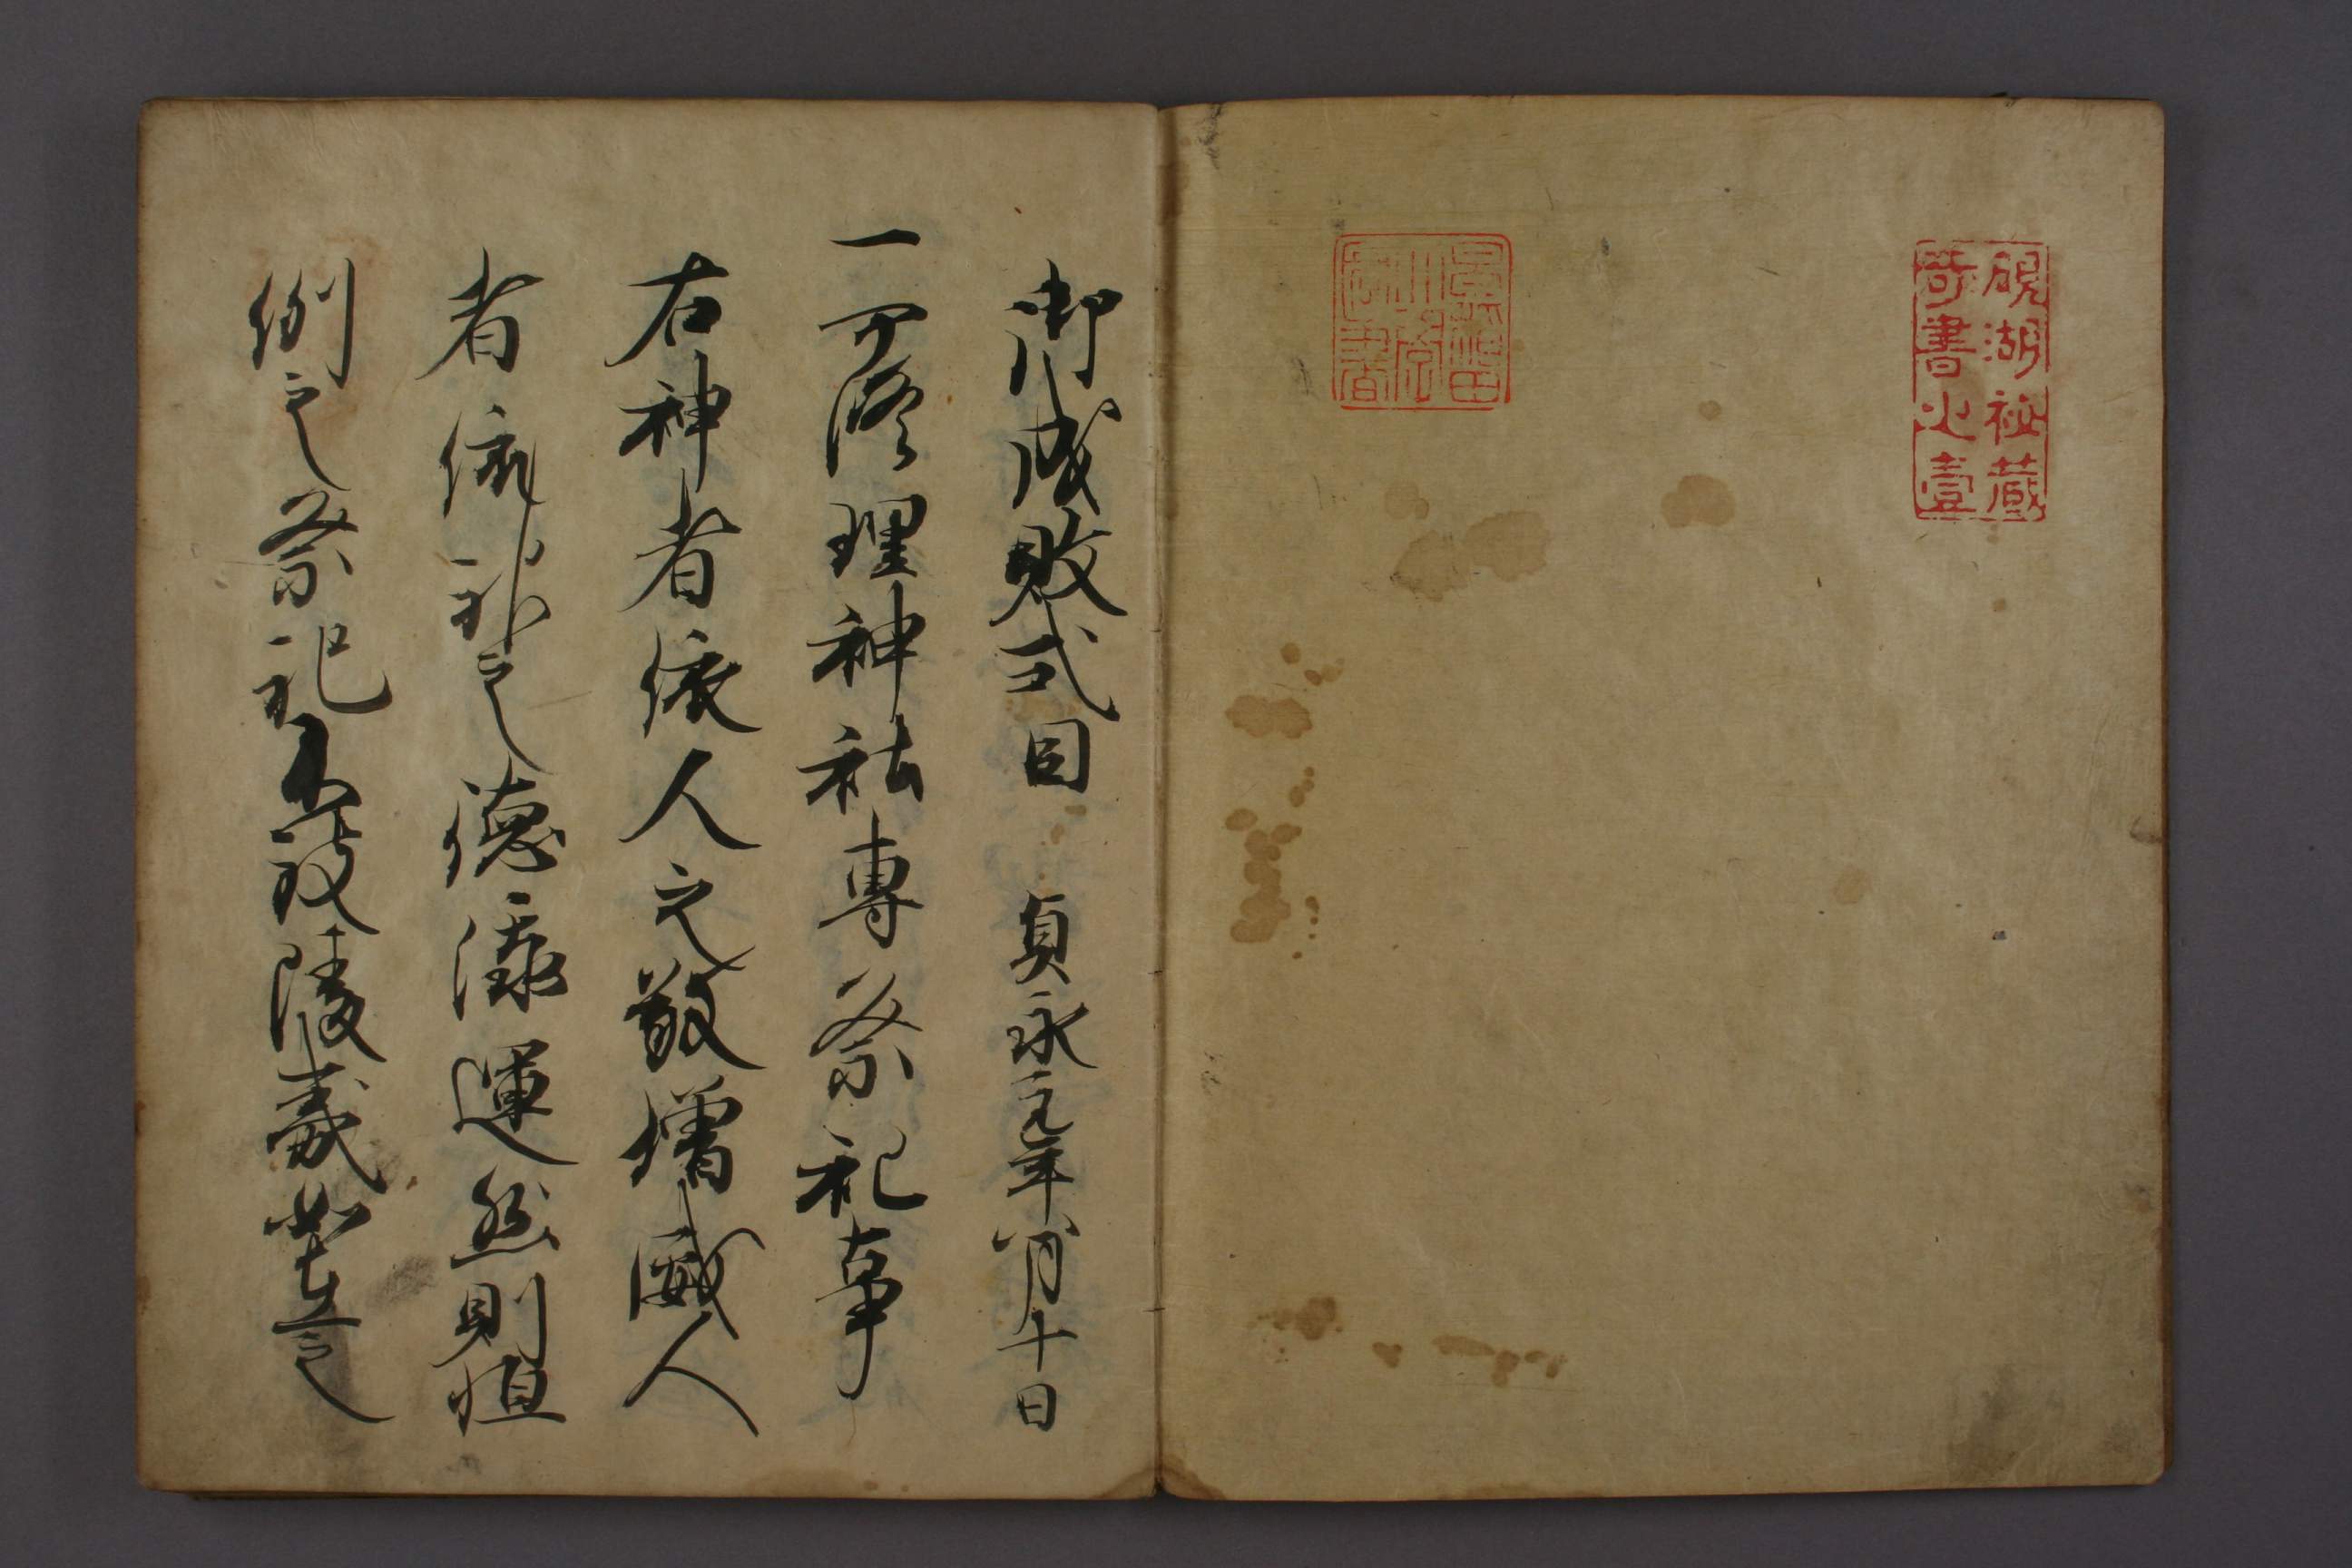 硯湖祕蔵
奇書之壹
御成敗式目 貞永元年八月十日
一可修理神社専祭祀事
右神者依人之敬増威人
者依神之徳添運然則恒
例之祭祀不致陵夷如在之